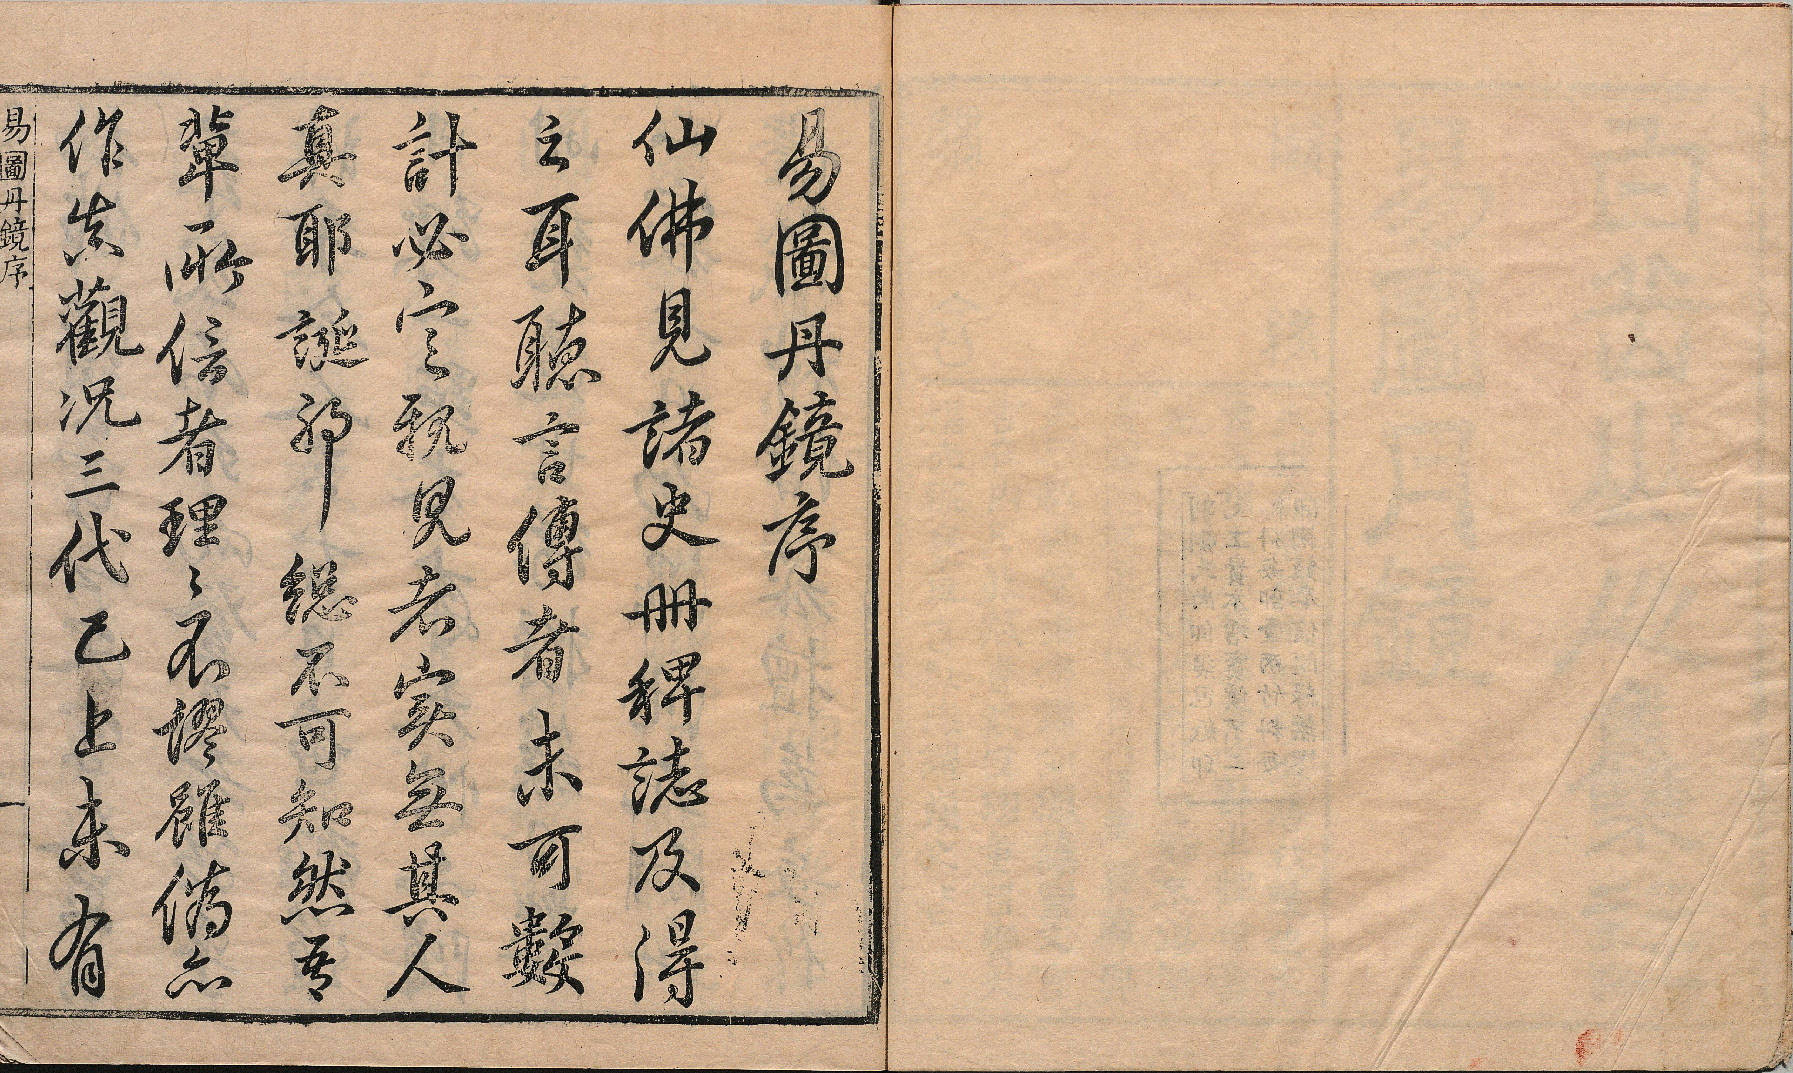 易圖丹鏡序
仙佛見諸史册稗誌及得
之耳聽言傳者未可數
計必定親見者实無其人
真耶誕耶總不可知然吾
輩所信者理理不謬雖偽亦
作真觀况三代已上未有
易圖丹鏡序
一